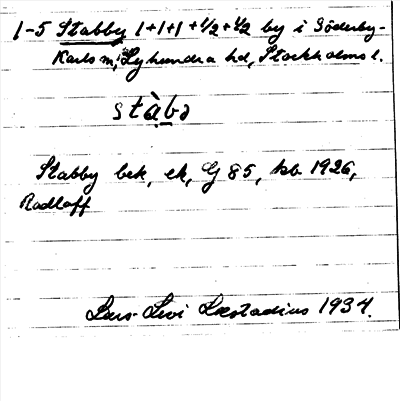 1-5 Stabby 1+1+1+1/2+1/2 by i Söderby-
Karls sn, Lyhundra hd, Stockholms l.
stàbə
Stabby bek, ek, G 85, hb 1926,
Radloff
Lars-Levi Læstadius 1934.